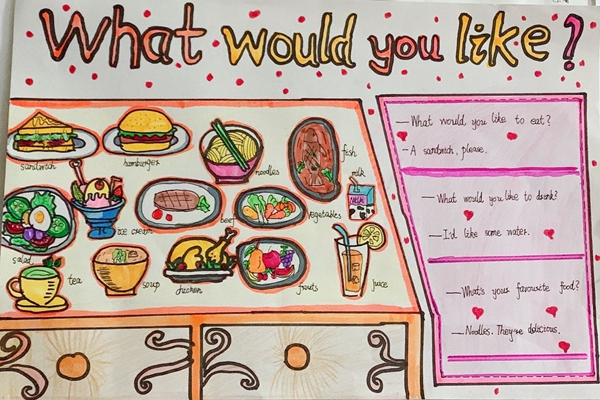 What would you like?
sandwich
hamburger
noodles
fish
milk
MILK
salad
ice cream
beef
vegetables
tea
soup
chicken
fruits
juice
—What would you like to eat?
—A sandwich, please.
—What would you like to drink?
—I'd like some water.
—What's your favourite food?
—Noodles. They're delicious.